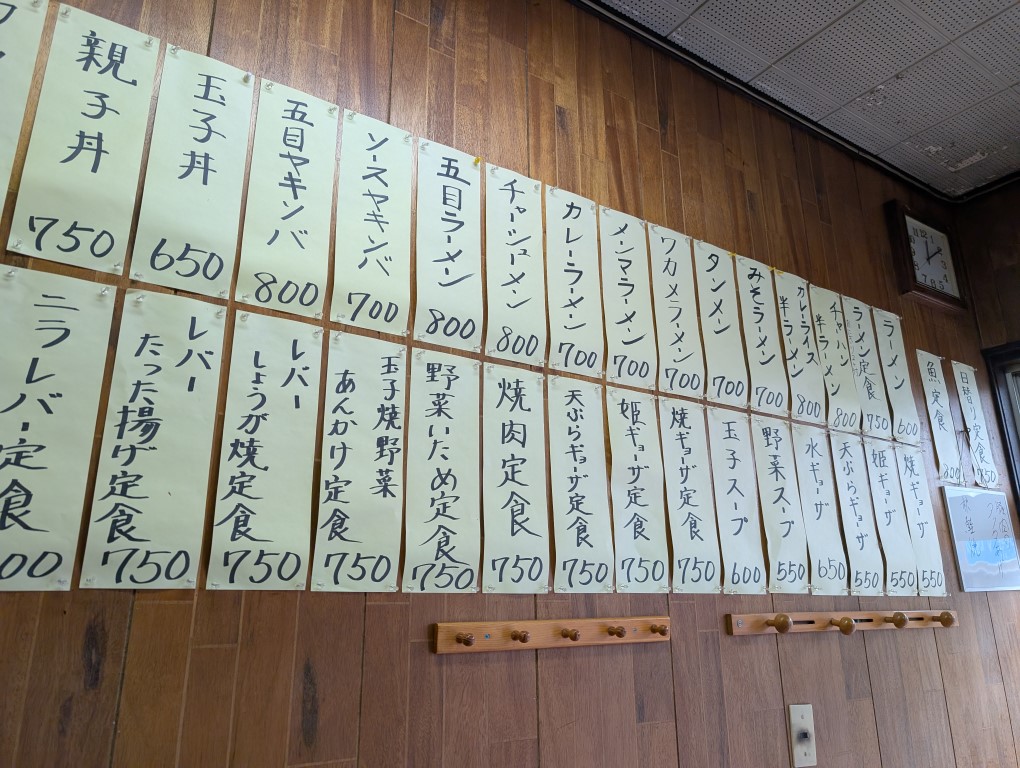 日替り定食
魚定食
ラーメン
600
ラーメン定食
750
チャーハン
半ラーメン
800
カレーライス
半ラーメン
800
みそラーメン
700
タンメン
700
ワカメラーメン
700
メンマラーメン
700
カレーラーメン
700
チャーシューメン
800
五目ラーメン
800
ソースヤキソバ
700
五目ヤキソバ
800
玉子丼
650
親子丼
750
焼ギョーザ
550
姫ギョーザ
550
天ぷらギョーザ
550
水ギョーザ
650
野菜スープ
550
玉子スープ
600
焼ギョーザ定食
750
姫ギョーザ定食
750
天ぷらギョーザ定食
750
焼肉定食
750
野菜いため定食
750
玉子焼野菜
あんかけ定食
750
レバー
しょうが焼定食
750
レバー
たった揚げ定食
750
ニラレバー定食
00